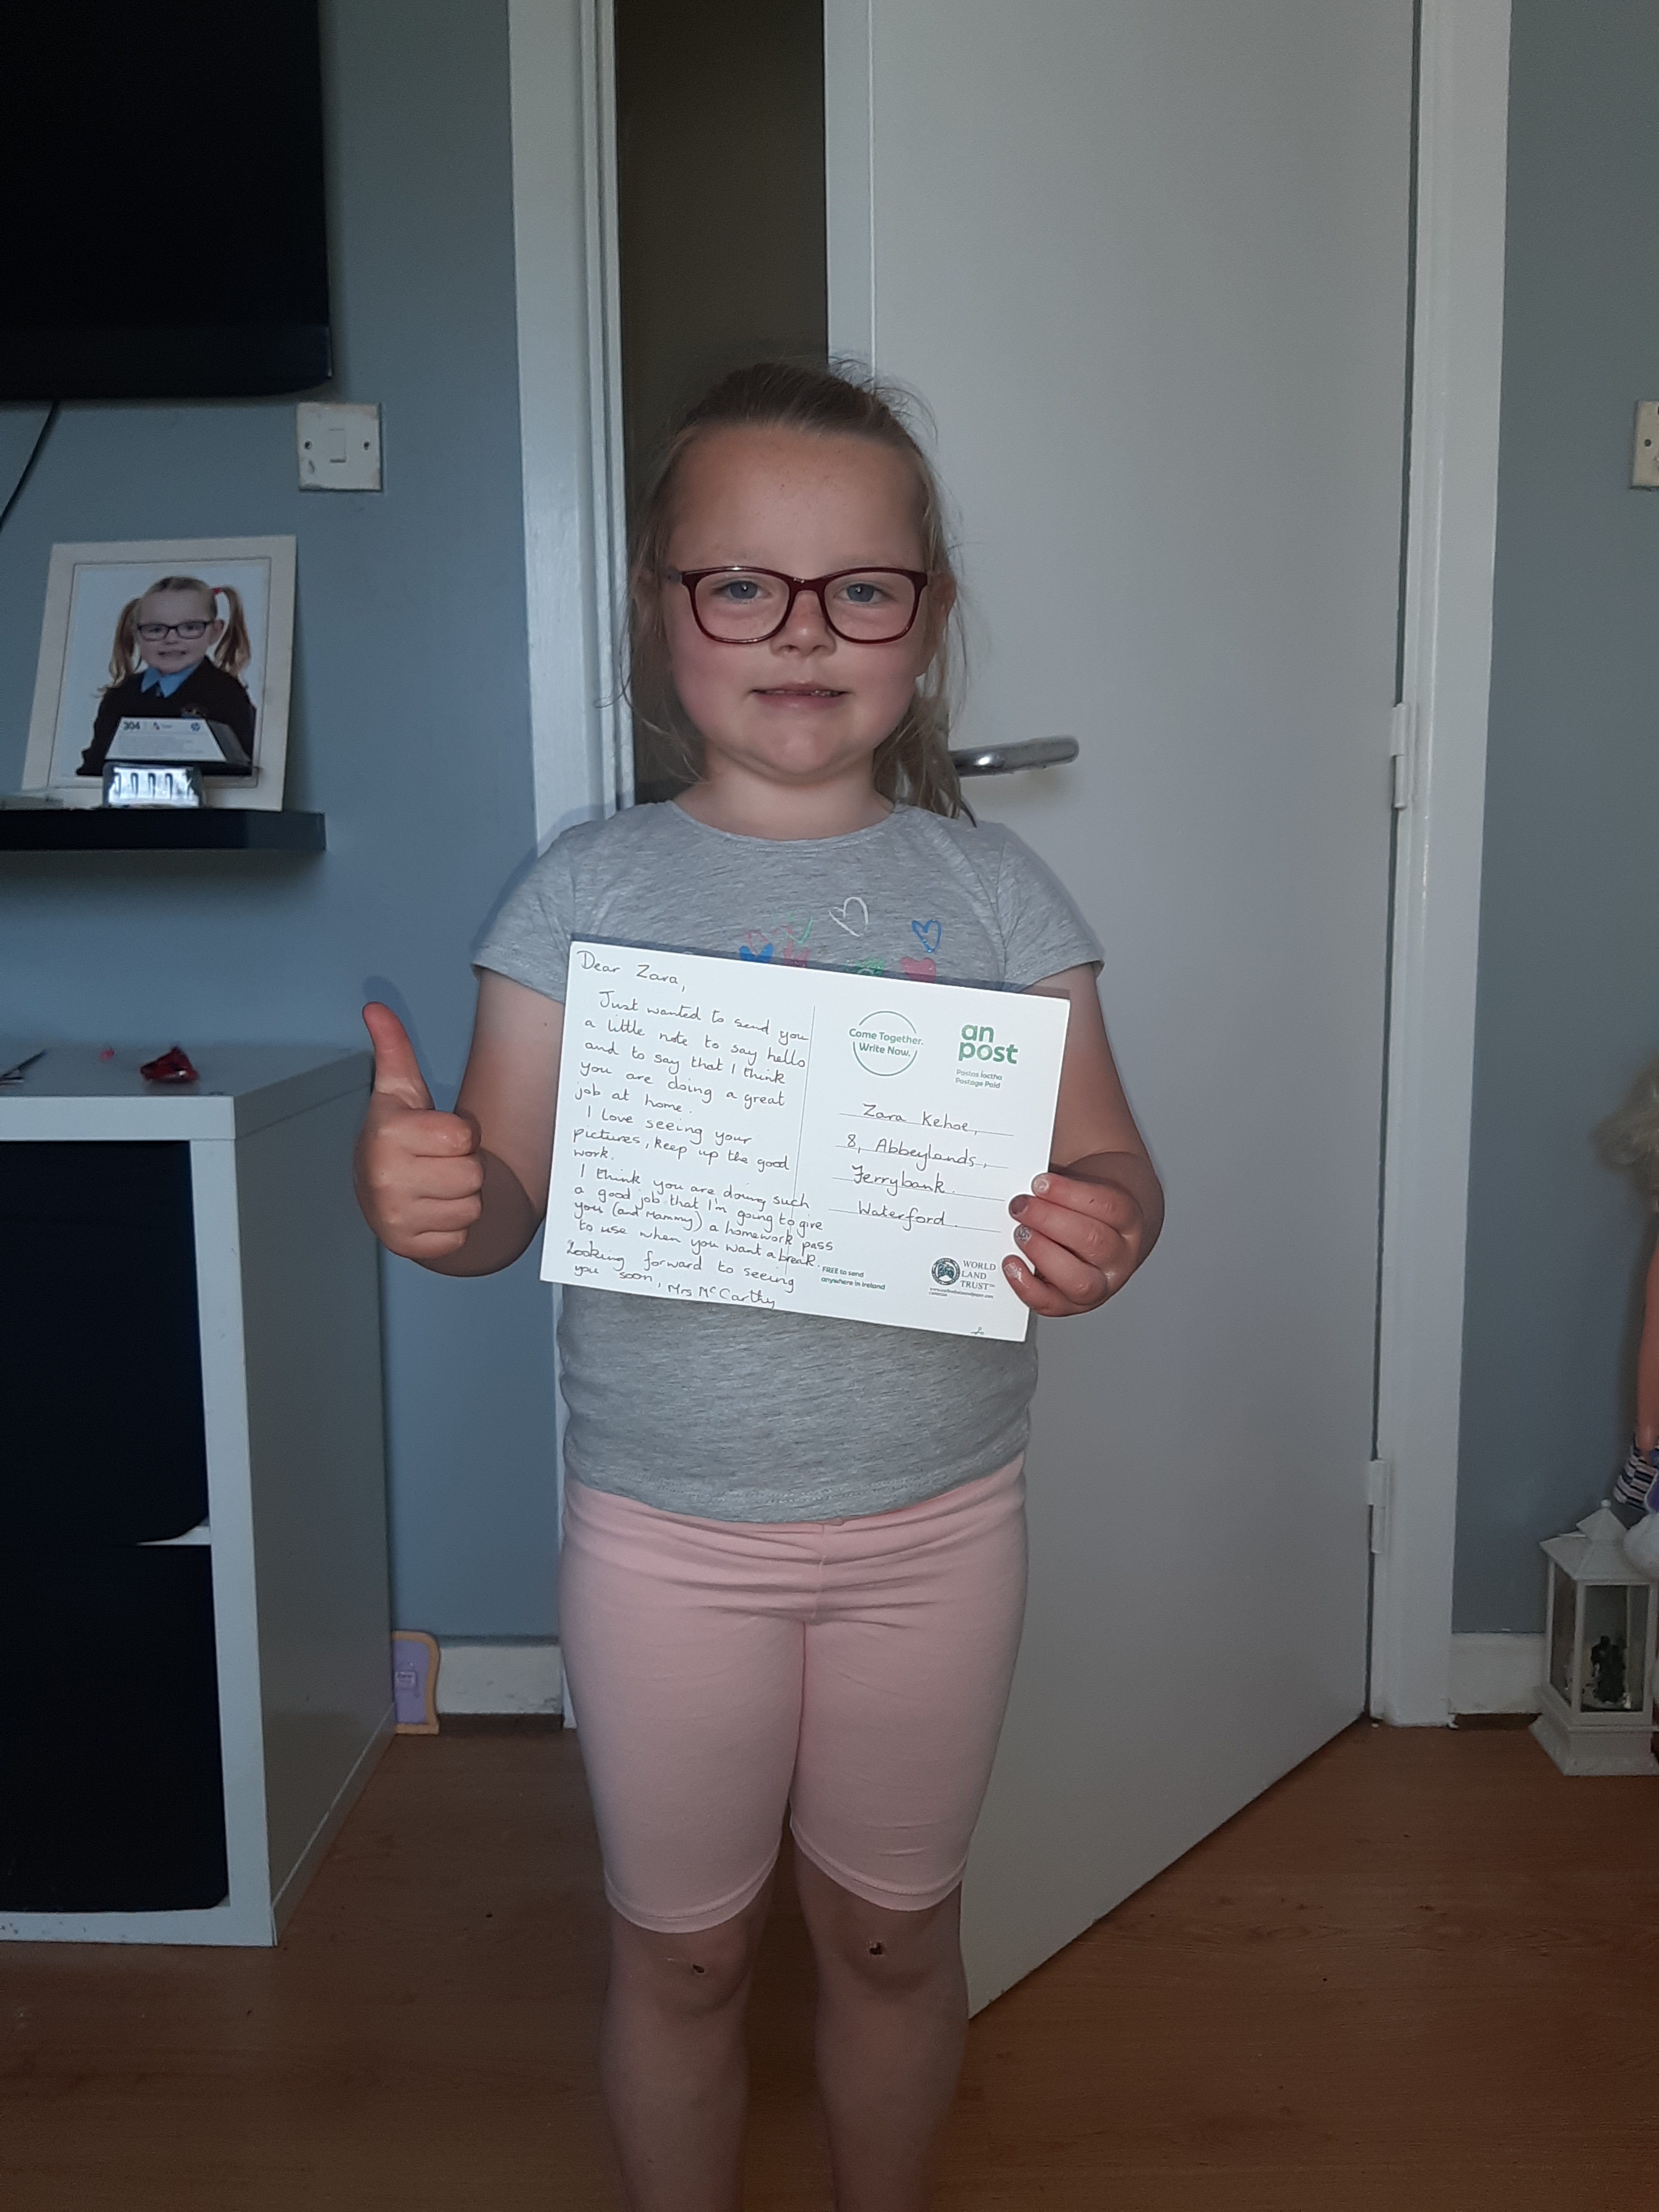 304
Dear Zara,
Just wanted to send you
a little note to say hello
and to say that I think
you are doing a great
job at home.
I love seeing your
pictures, keep up the good
work.
I think you are doing such
a good job that I'm going to give
you (and Mammy) a homework pass
to use when you want a break.
Looking forward to seeing
you soon, Mrs McCarthy
Come Together.
Write Now.
an
post
Postas Íoctha
Postage Paid
Zara Kehoe,
8, Abbeylands,
Ferrybank.
Waterford.
FREE to send
anywhere in Ireland
WORLD
LAND
TRUST™